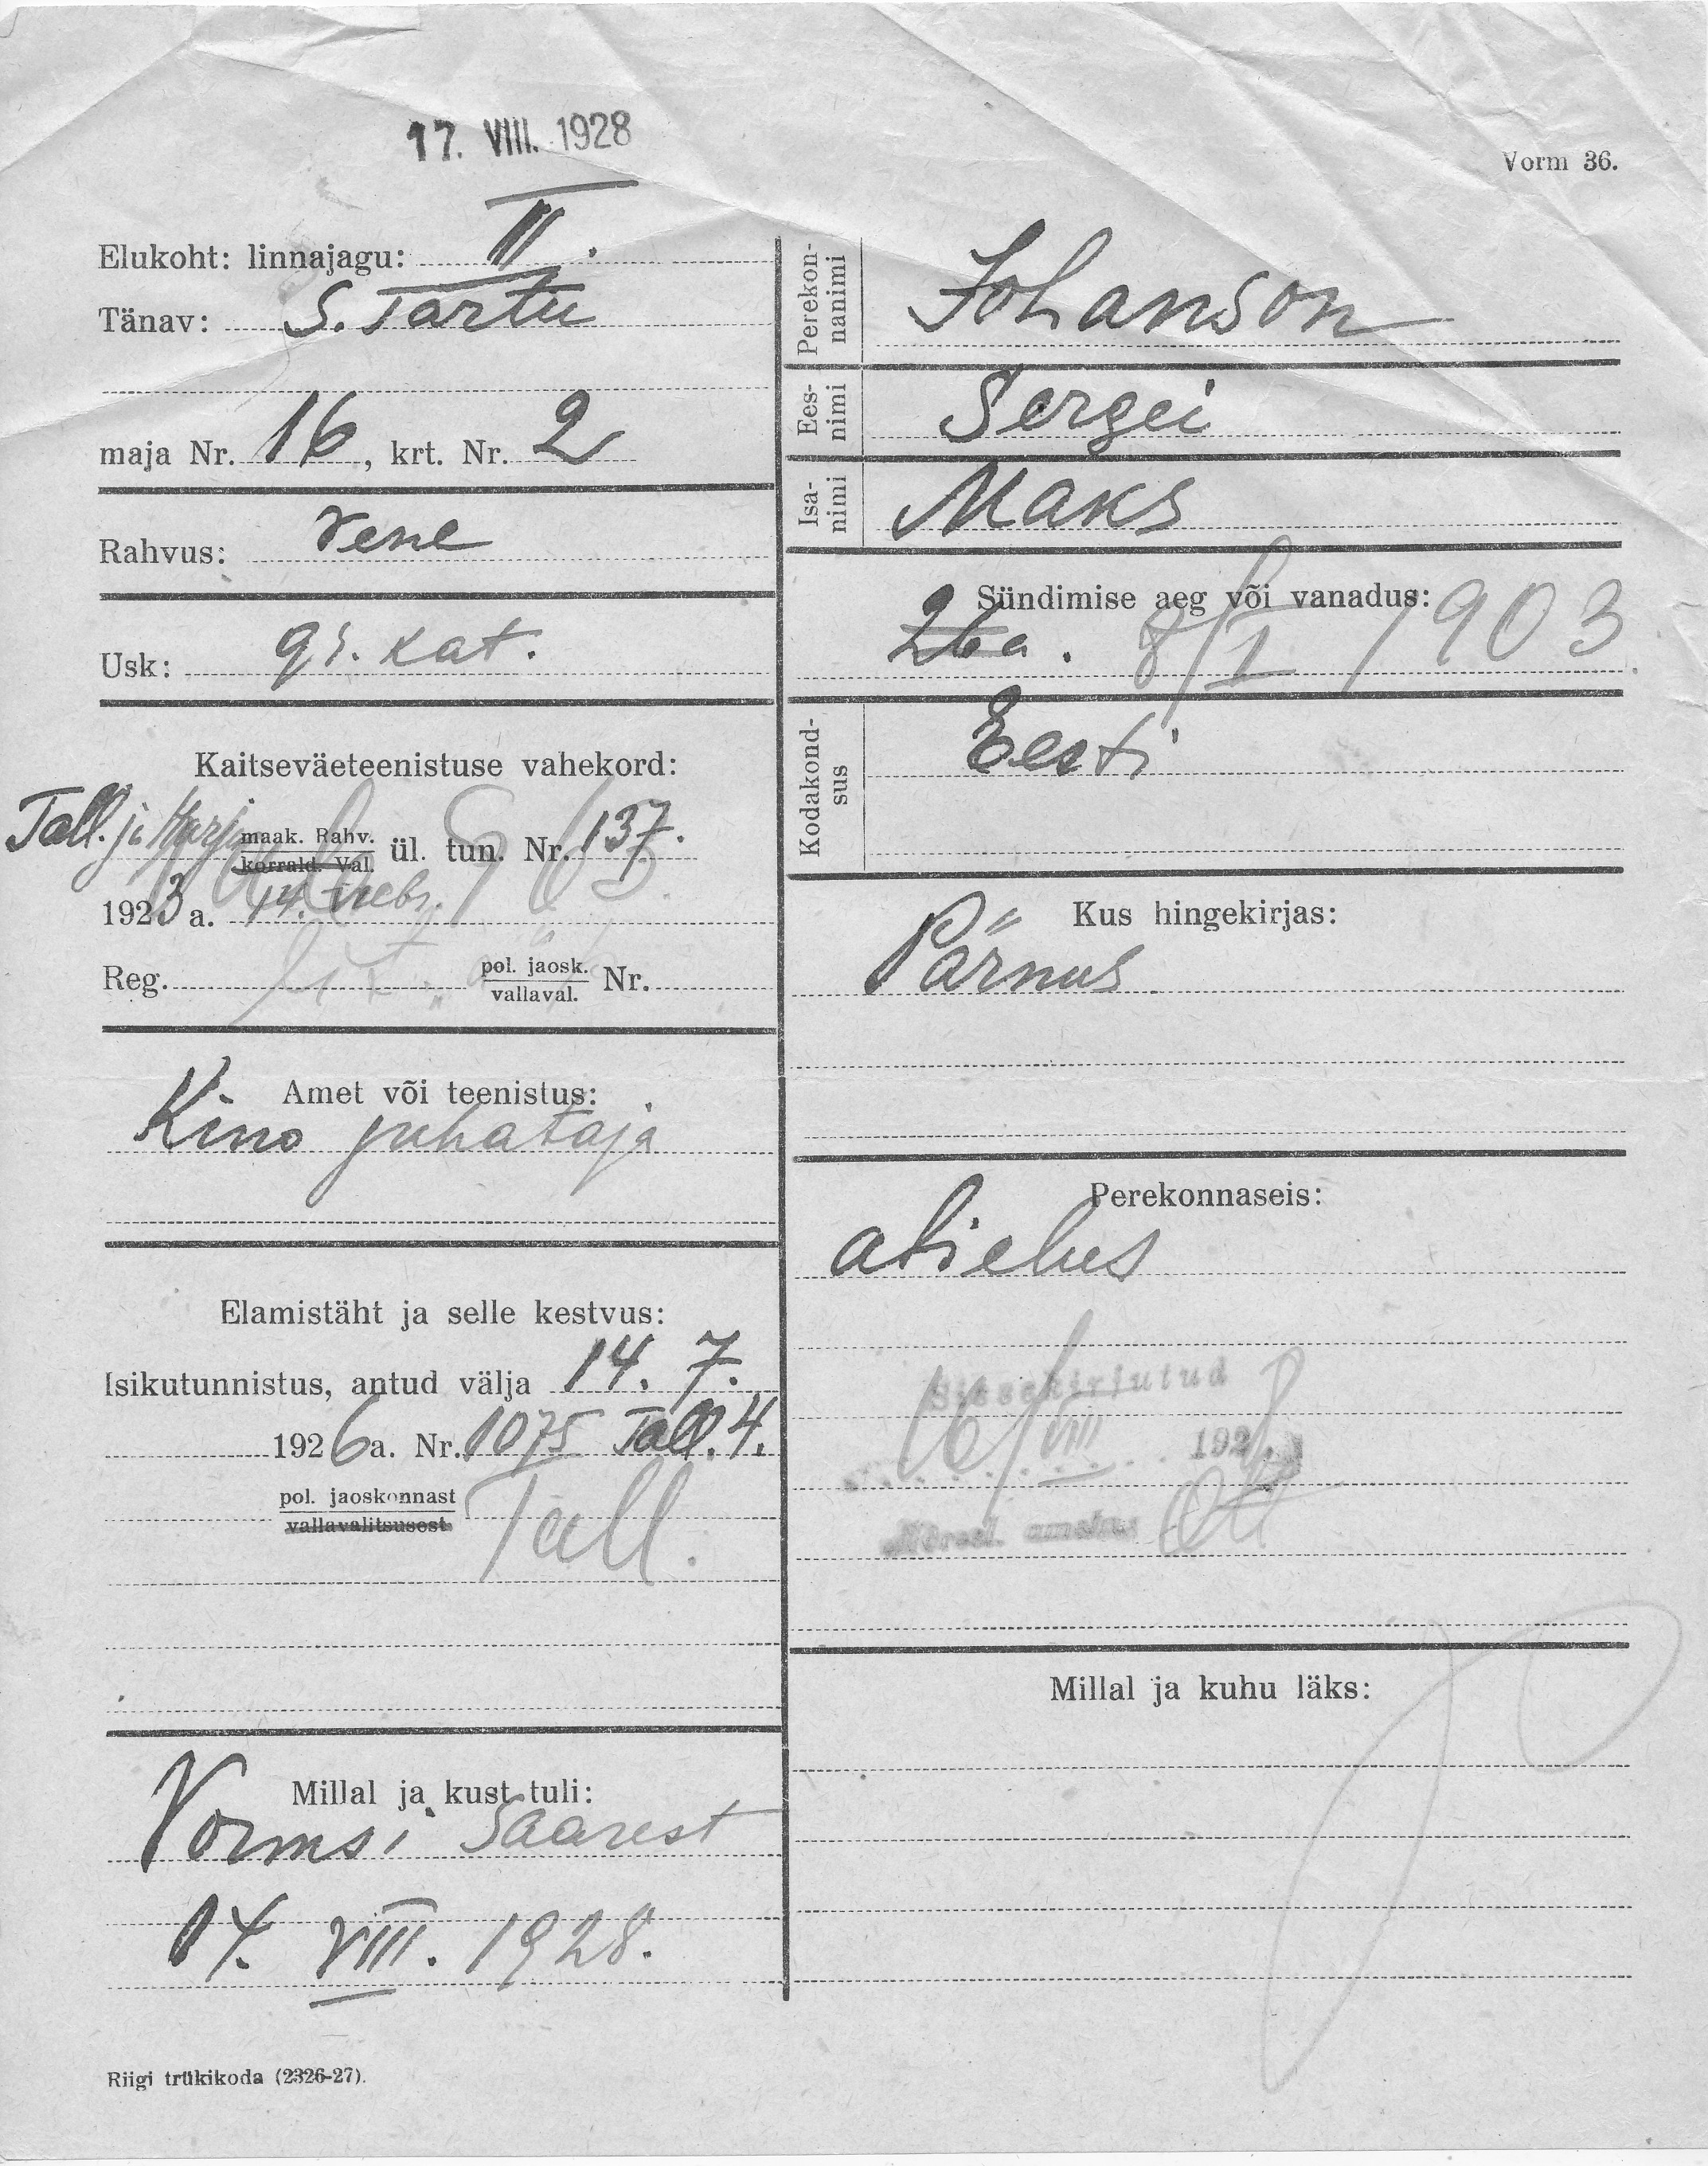 17. VIII. 1928
Vorm 36.
Elukoht: linnajagu: II.
Tänav: S. Tartu
maja Nr. 16, krt. Nr. 2
Rahvus: vene
Usk: gr. kat.
Kaitseväeteenistuse vahekord:
Tall. ja Harju maak. Rahv.
korrald. Val. ül. tun. Nr. 137.
1923 a. 14.
Reg. pol. jaosk.
vallaval. Nr.
Amet või teenistus:
Kino juhataja
Elamistäht ja selle kestvus:
Isikutunnistus, antud välja 14. 7.
1926 a. Nr. 1075 Tall. 4.
pol. jaoskonnast
vallavalitsusest
Tall.
Millal ja kust tuli:
Vormsi Saarest
14. VIII. 1928.
Riigi trükikoda (2326-27).
Perekonnanimi Johanson
Eesnimi Sergei
Isanimi Maks
Sündimise aeg või vanadus:
26 a. 8/I 1903
Kodakondsus Eesti
Kus hingekirjas:
Pärnus
Perekonnaseis:
abielus
Sissekirjutud
16/VIII 1928
Millal ja kuhu läks: